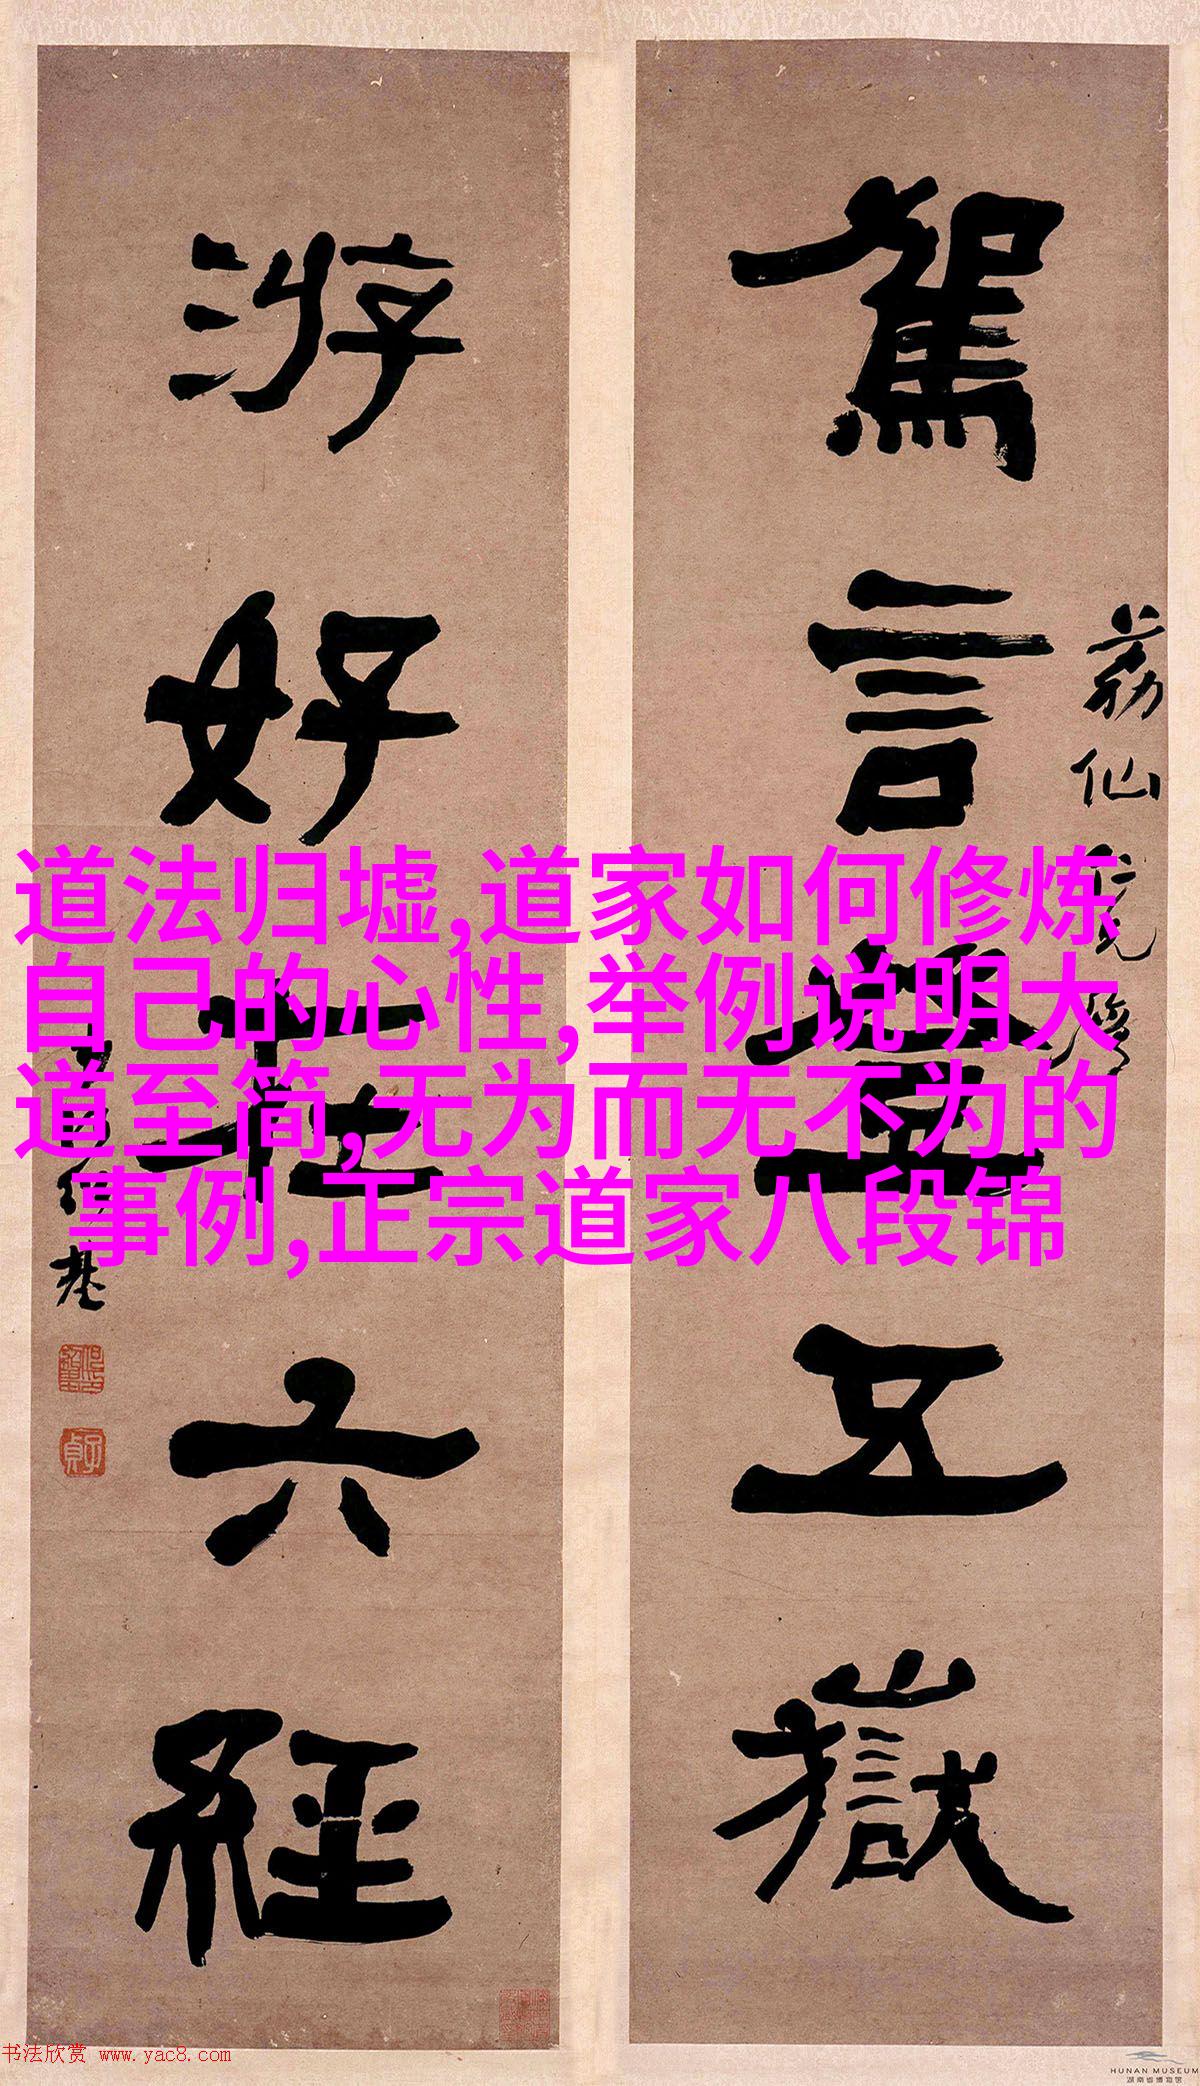 駕言登五嶽
荔仙仁兄
游好在六經
何紹基
道法归墟,道家如何修炼
自己的心性,举例说明大
道至简,无为而无不为的
事例,正宗道家八段锦
书法欣赏 www.yac8.com
HUNAN MUSEUM
湖南省博物馆